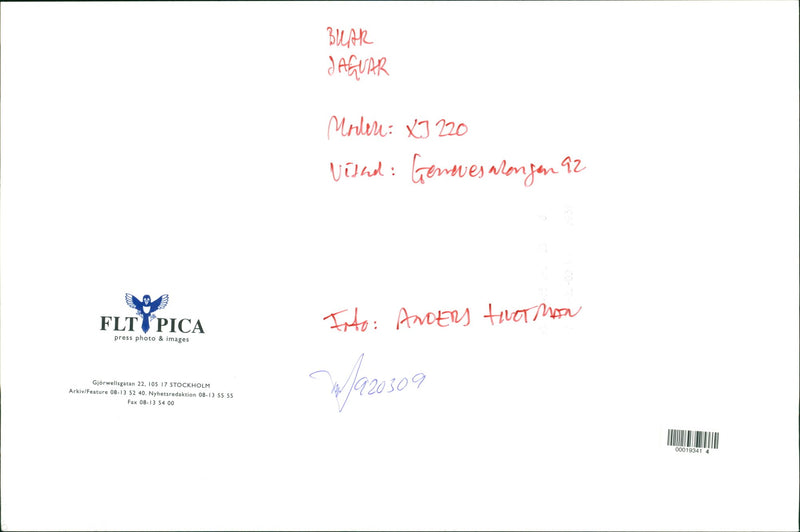 BILAR
JAGUAR
Modell: XJ 220
Visad: Genevesalongen 92
Foto: ANDERS
920309
FLT PICA
press photo & images
Gjörwellsgatan 22, 105 17 STOCKHOLM
Arkiv/Feature 08-13 52 40, Nyhetsredaktion 08-13 55 55
Fax 08-13 54 00
00019341 4